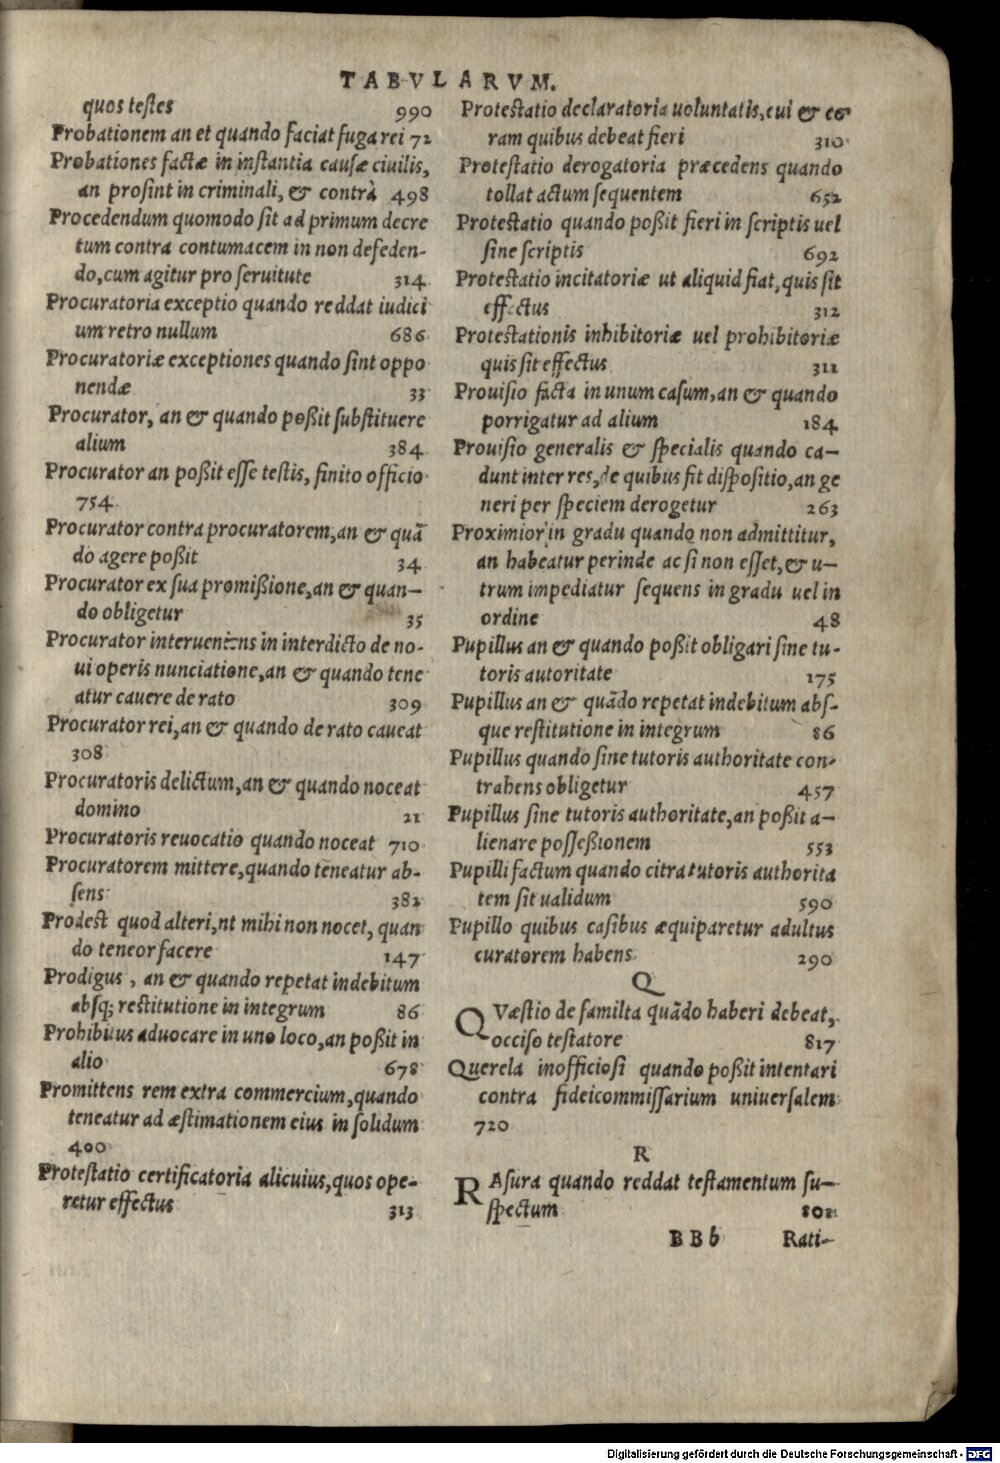 TABVLARVM.
quos testes 990
Probationem an et quando faciat fuga rei 72
Probationes factæ in instantia causæ ciuilis,
an prosint in criminali, & contrà 498
Procedendum quomodo sit ad primum decre
tum contra contumacem in non defeden-
do, cum agitur pro seruitute 314
Procuratoria exceptio quando reddat iudici
um retro nullum 686
Procuratoriæ exceptiones quando sint oppo
nendæ 33
Procurator, an & quando poßit substituere
alium 384
Procurator an poßit esse testis, finito officio
754
Procurator contra procuratorem, an & quā
do agere poßit 34
Procurator ex sua promißione, an & quan-
do obligetur 35
Procurator interueniens in interdicto de no-
ui operis nunciatione, an & quando tene
atur cauere de rato 309
Procurator rei, an & quando de rato caueat
308
Procuratoris delictum, an & quando noceat
domino 21
Procuratoris reuocatio quando noceat 710
Procuratorem mittere, quando teneatur ab-
sens 382
Prodest quod alteri, nt mihi non nocet, quan
do teneor facere 147
Prodigus, an & quando repetat indebitum
absq; restitutione in integrum 86
Prohibitus aduocare in uno loco, an poßit in
alio 678
Promittens rem extra commercium, quando
teneatur ad æstimationem eius in solidum
400
Protestatio certificatoria alicuius, quos ope-
retur effectus 313
Protestatio declaratoria uoluntatis, cui & co
ram quibus debeat fieri 310
Protestatio derogatoria præcedens quando
tollat actum sequentem 652
Protestatio quando poßit fieri in scriptis uel
sine scriptis 692
Protestatio incitatoriæ ut aliquid fiat, quis sit
effectus 312
Protestationis inhibitoriæ uel prohibitoriæ
quis sit effectus 311
Prouisio facta in unum casum, an & quando
porrigatur ad alium 184
Prouisio generalis & specialis quando ca-
dunt inter res, de quibus fit dispositio, an ge
neri per speciem derogetur 263
Proximior in gradu quando non admittitur,
an habeatur perinde ac si non esset, & u-
trum impediatur sequens in gradu uel in
ordine 48
Pupillus an & quando poßit obligari sine tu-
toris autoritate 175
Pupillus an & quādo repetat indebitum abs-
que restitutione in integrum 86
Pupillus quando sine tutoris authoritate con-
trahens obligetur 457
Pupillus sine tutoris authoritate, an poßit a-
lienare posseßionem 553
Pupilli factum quando citra tutoris authorita
tem sit ualidum 590
Pupillo quibus casibus æquiparetur adultus
curatorem habens 290
Q
QVæstio de familta quādo haberi debeat,
occiso testatore 817
Querela inofficiosi quando poßit intentari
contra fideicommissarium uniuersalem
720
R
RAsura quando reddat testamentum su-
spectum 802
BBb Rati-
Digitalisierung gefördert durch die Deutsche Forschungsgemeinschaft - DFG